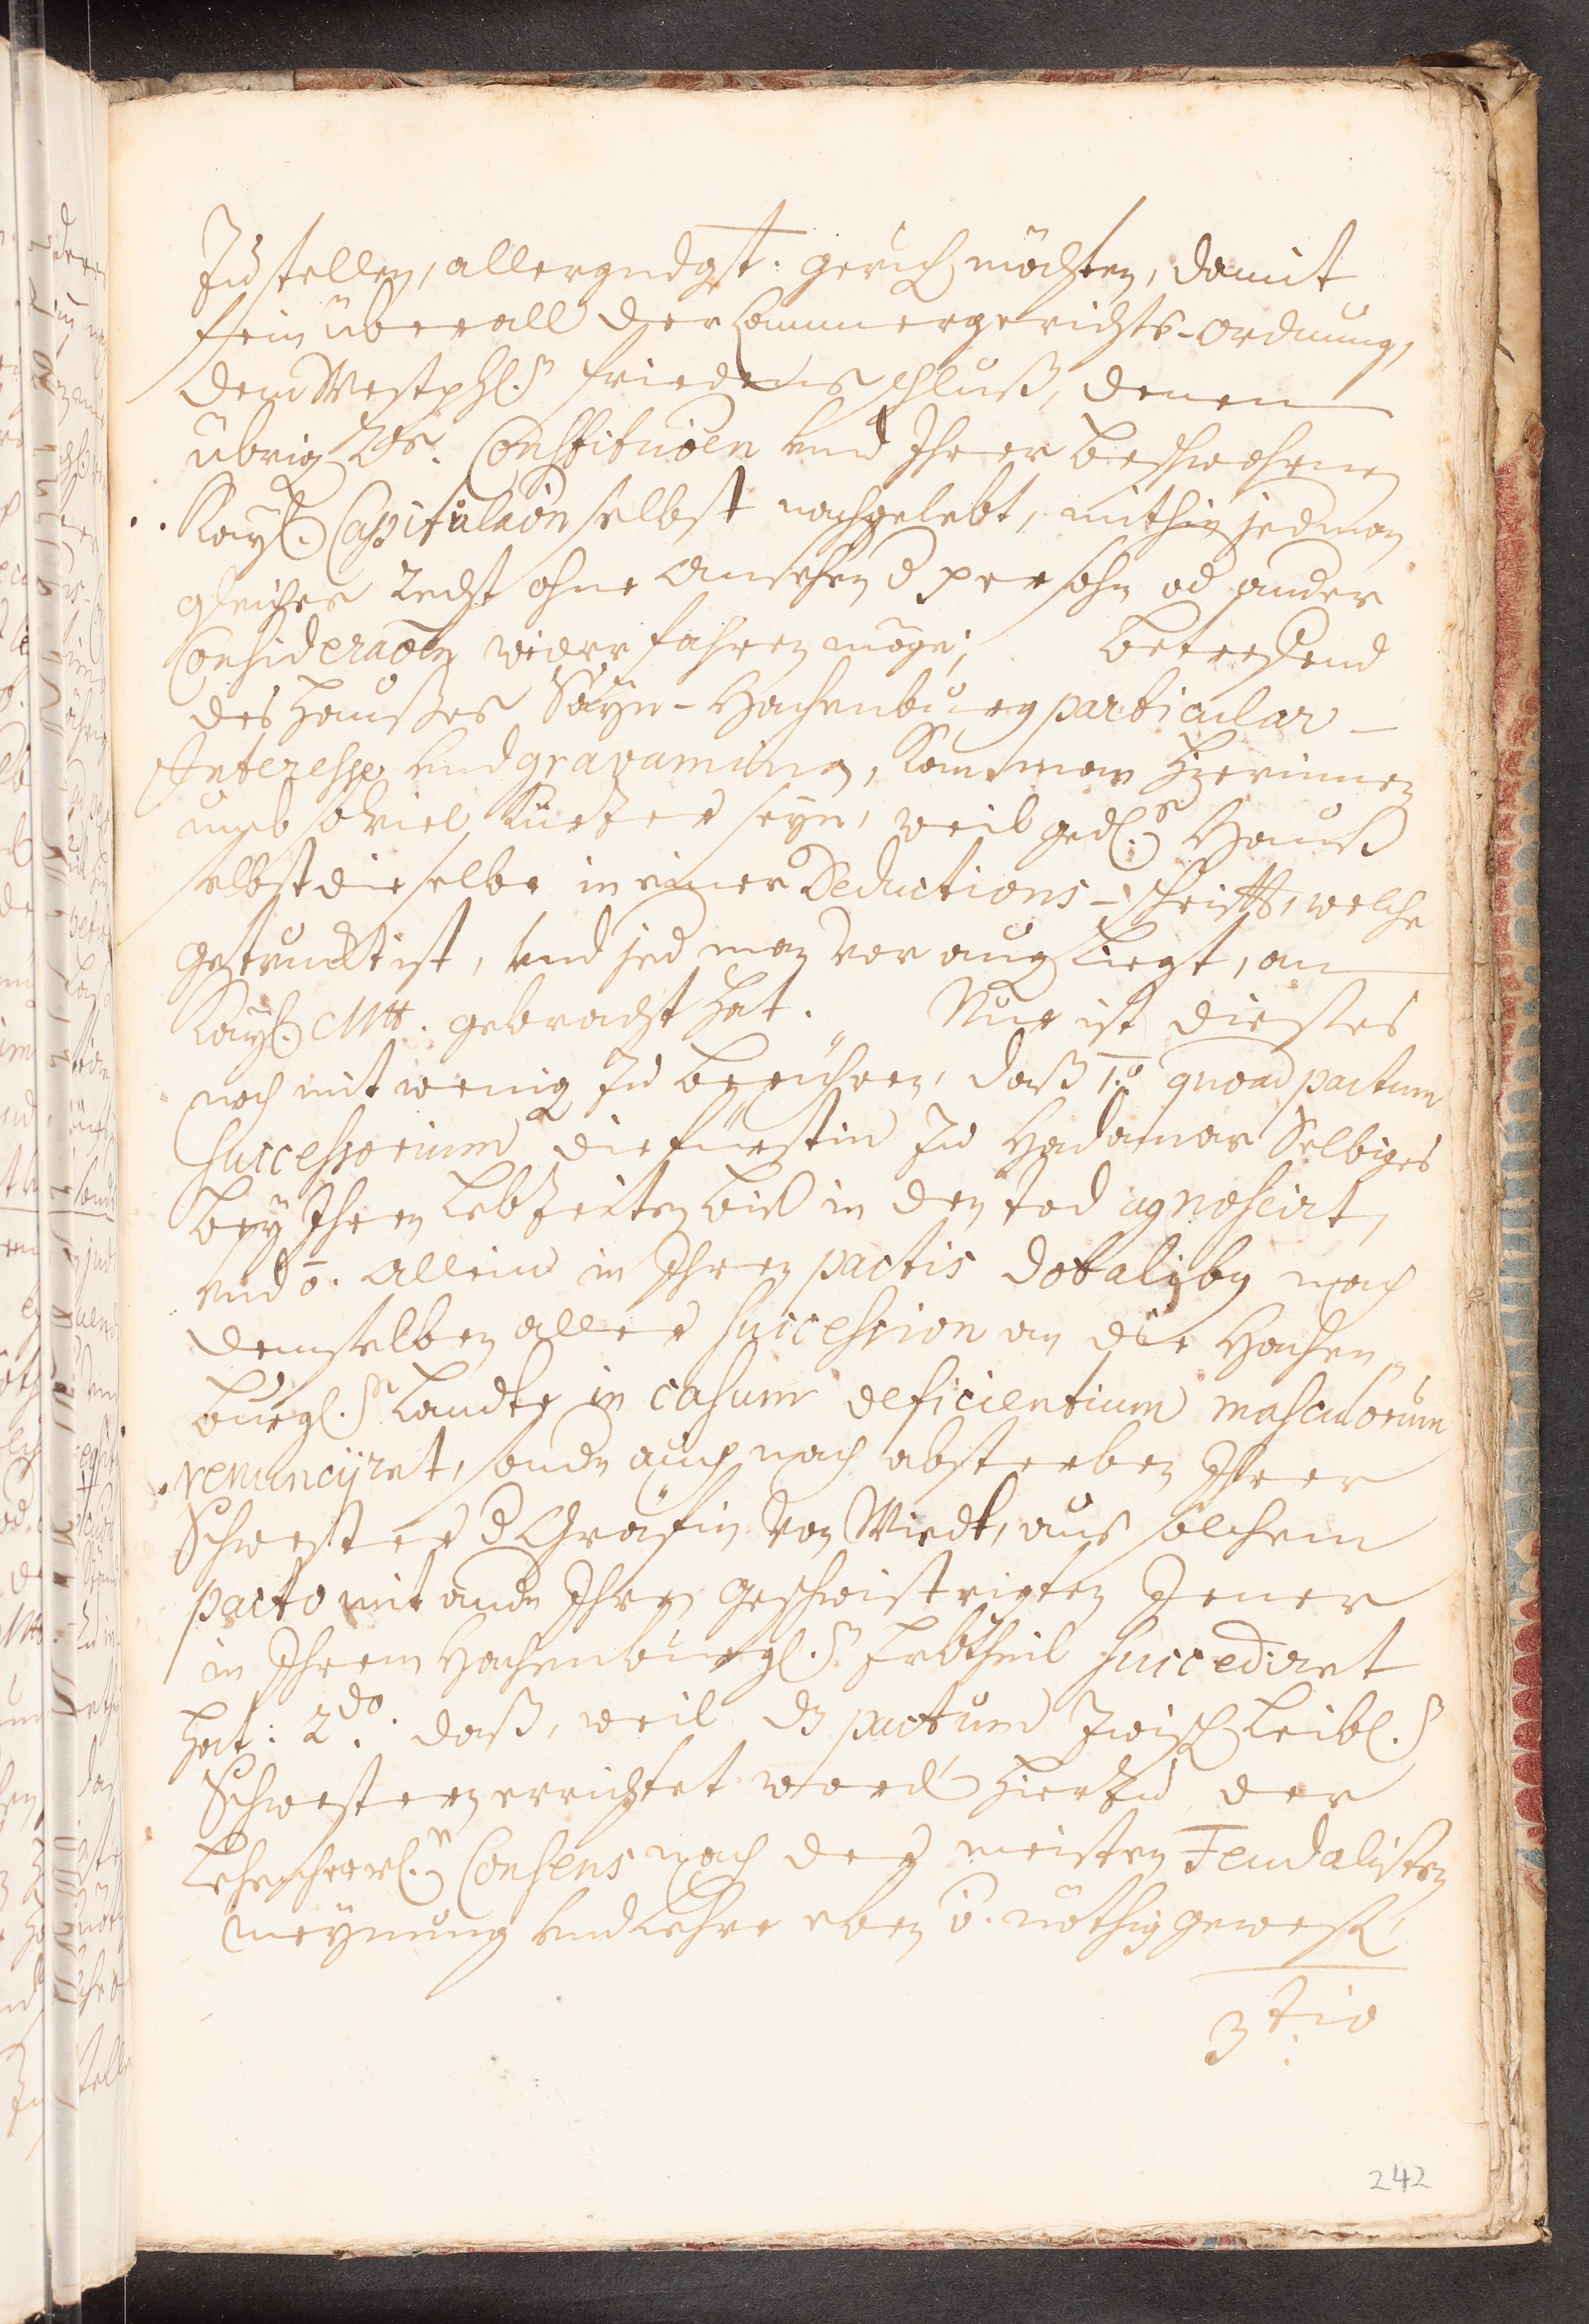 Zustellen, allergndgst. geruhen möchten, damit
fein überall der Cammergerichts-ordnung,
dem Westphl.n friedensschluß, denen
übrig Rs. Constituoen und Ihrer beschwohrnen
Kayl. Capitulaon selbst nachgelebt, mithin jedman
gleiches Recht ohne ansehen d persohn od ander
Consideraoen widerfahren möge; betreffend
des Haußes Sayn-Hachenburg particular-
Interesse und gravamina, kan man hierinnen
umb soviel kürtzer seyn, weil gedl.s Hauß
selbst dieselbe in einer Deductions-schrifft, welche
getruckt ist, und jedman vor aug liegt, an
Kayl. Mtt. gebracht hat. Nur ist dießes
noch mit wenig zu berühren, daß 1.o quoad pactum
successorium die fürstin zu Hadamar Selbiges
bey Ihren Lebzeiten biß in den tod agnoscirt,
und o. allein in Ihren pactis dotalibg nach
demselben aller succession an die Hachen„
burgl.n Landte in casum deficientium masculorum
renuncijret, sondn auch nach absterben Ihrer
Schwester d Gräfin von Wiedt, aus solchem
pacto mit andn Ihren geschwistrigten Jener
in Ihrem Hachenburgl.n Erbtheil succediret
hat: 2do. daß, weil dz pactum zwisch Leibl.n
Schwestern errichtet word hierzu der
Lehenherrl.n Consens nach den meisten Feudalisten
meynung und Lehre eben o. nöthig geweßt,
3tio
242